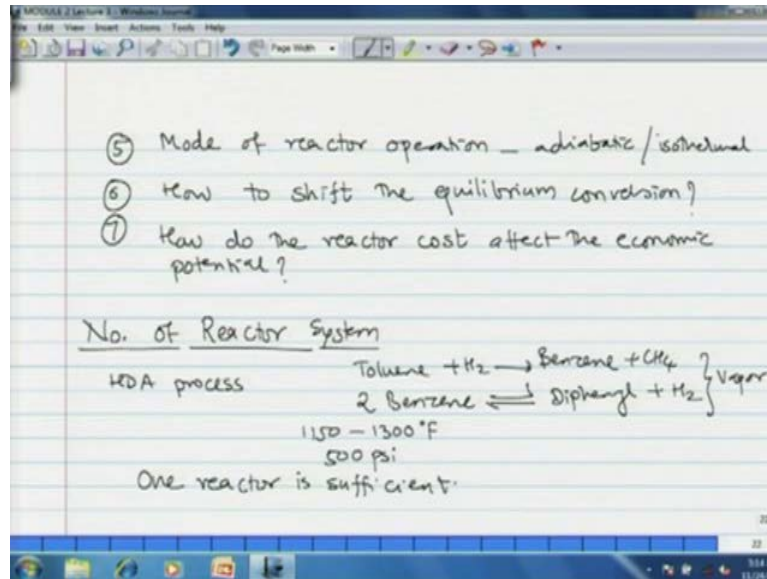 MODULE 2 Lecture 3 - Windows Journal
File Edit View Insert Actions Tools Help
Page Width
⑤ Mode of reactor operation - adiabatic / isothermal
⑥ How to shift the equilibrium conversion?
⑦ How do the reactor cost affect the economic
potential?
No. of Reactor System
HDA process
Toluene + H2 → Benzene + CH4
2 Benzene ⇌ Diphenyl + H2 } Vapor
1150 - 1300°F
500 psi
One reactor is sufficient.
22